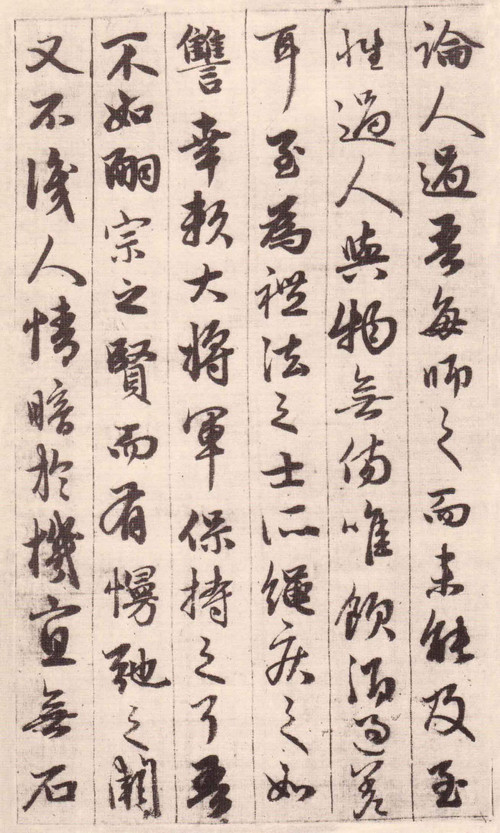 論人過吾每師之而未能及至
性過人與物無傷唯飲酒過差
耳至為禮法之士所繩疾之如
讐幸賴大將軍保持之耳吾
不如嗣宗之賢而有慢弛之闕
又不識人情暗於機宜無石